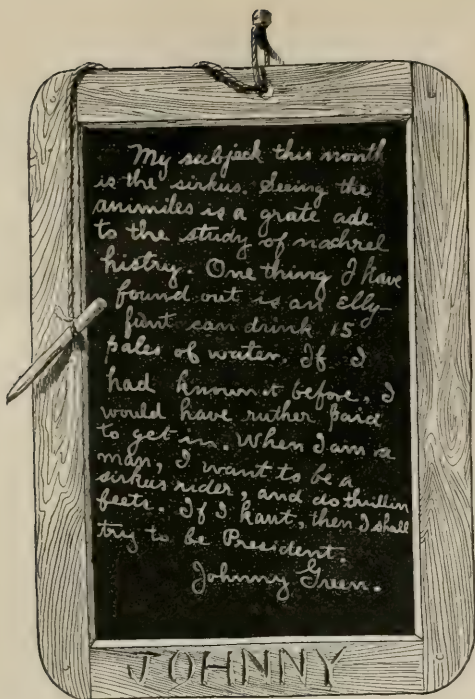 My subjeck this month
is the sirkus. Seeing the
animiles is a grate ade
to the study of nachrel
histry. One thing I have
found out is an elly-
funt can drink 15
pales of water. If I
had known it before, I
would have ruther paid
to get in. When I am a
man, I want to be a
sirkus rider, and do thrillin
feets. If I kant, then I shall
try to be President.
Johnny Green.
JOHNNY